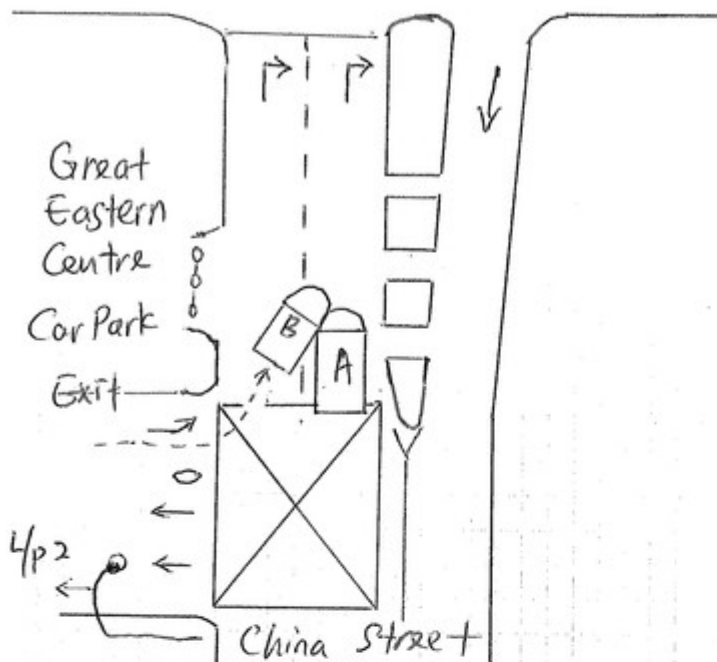 Great
Eastern
Centre
Car Park
Exit
B
A
L/p 2
China Street